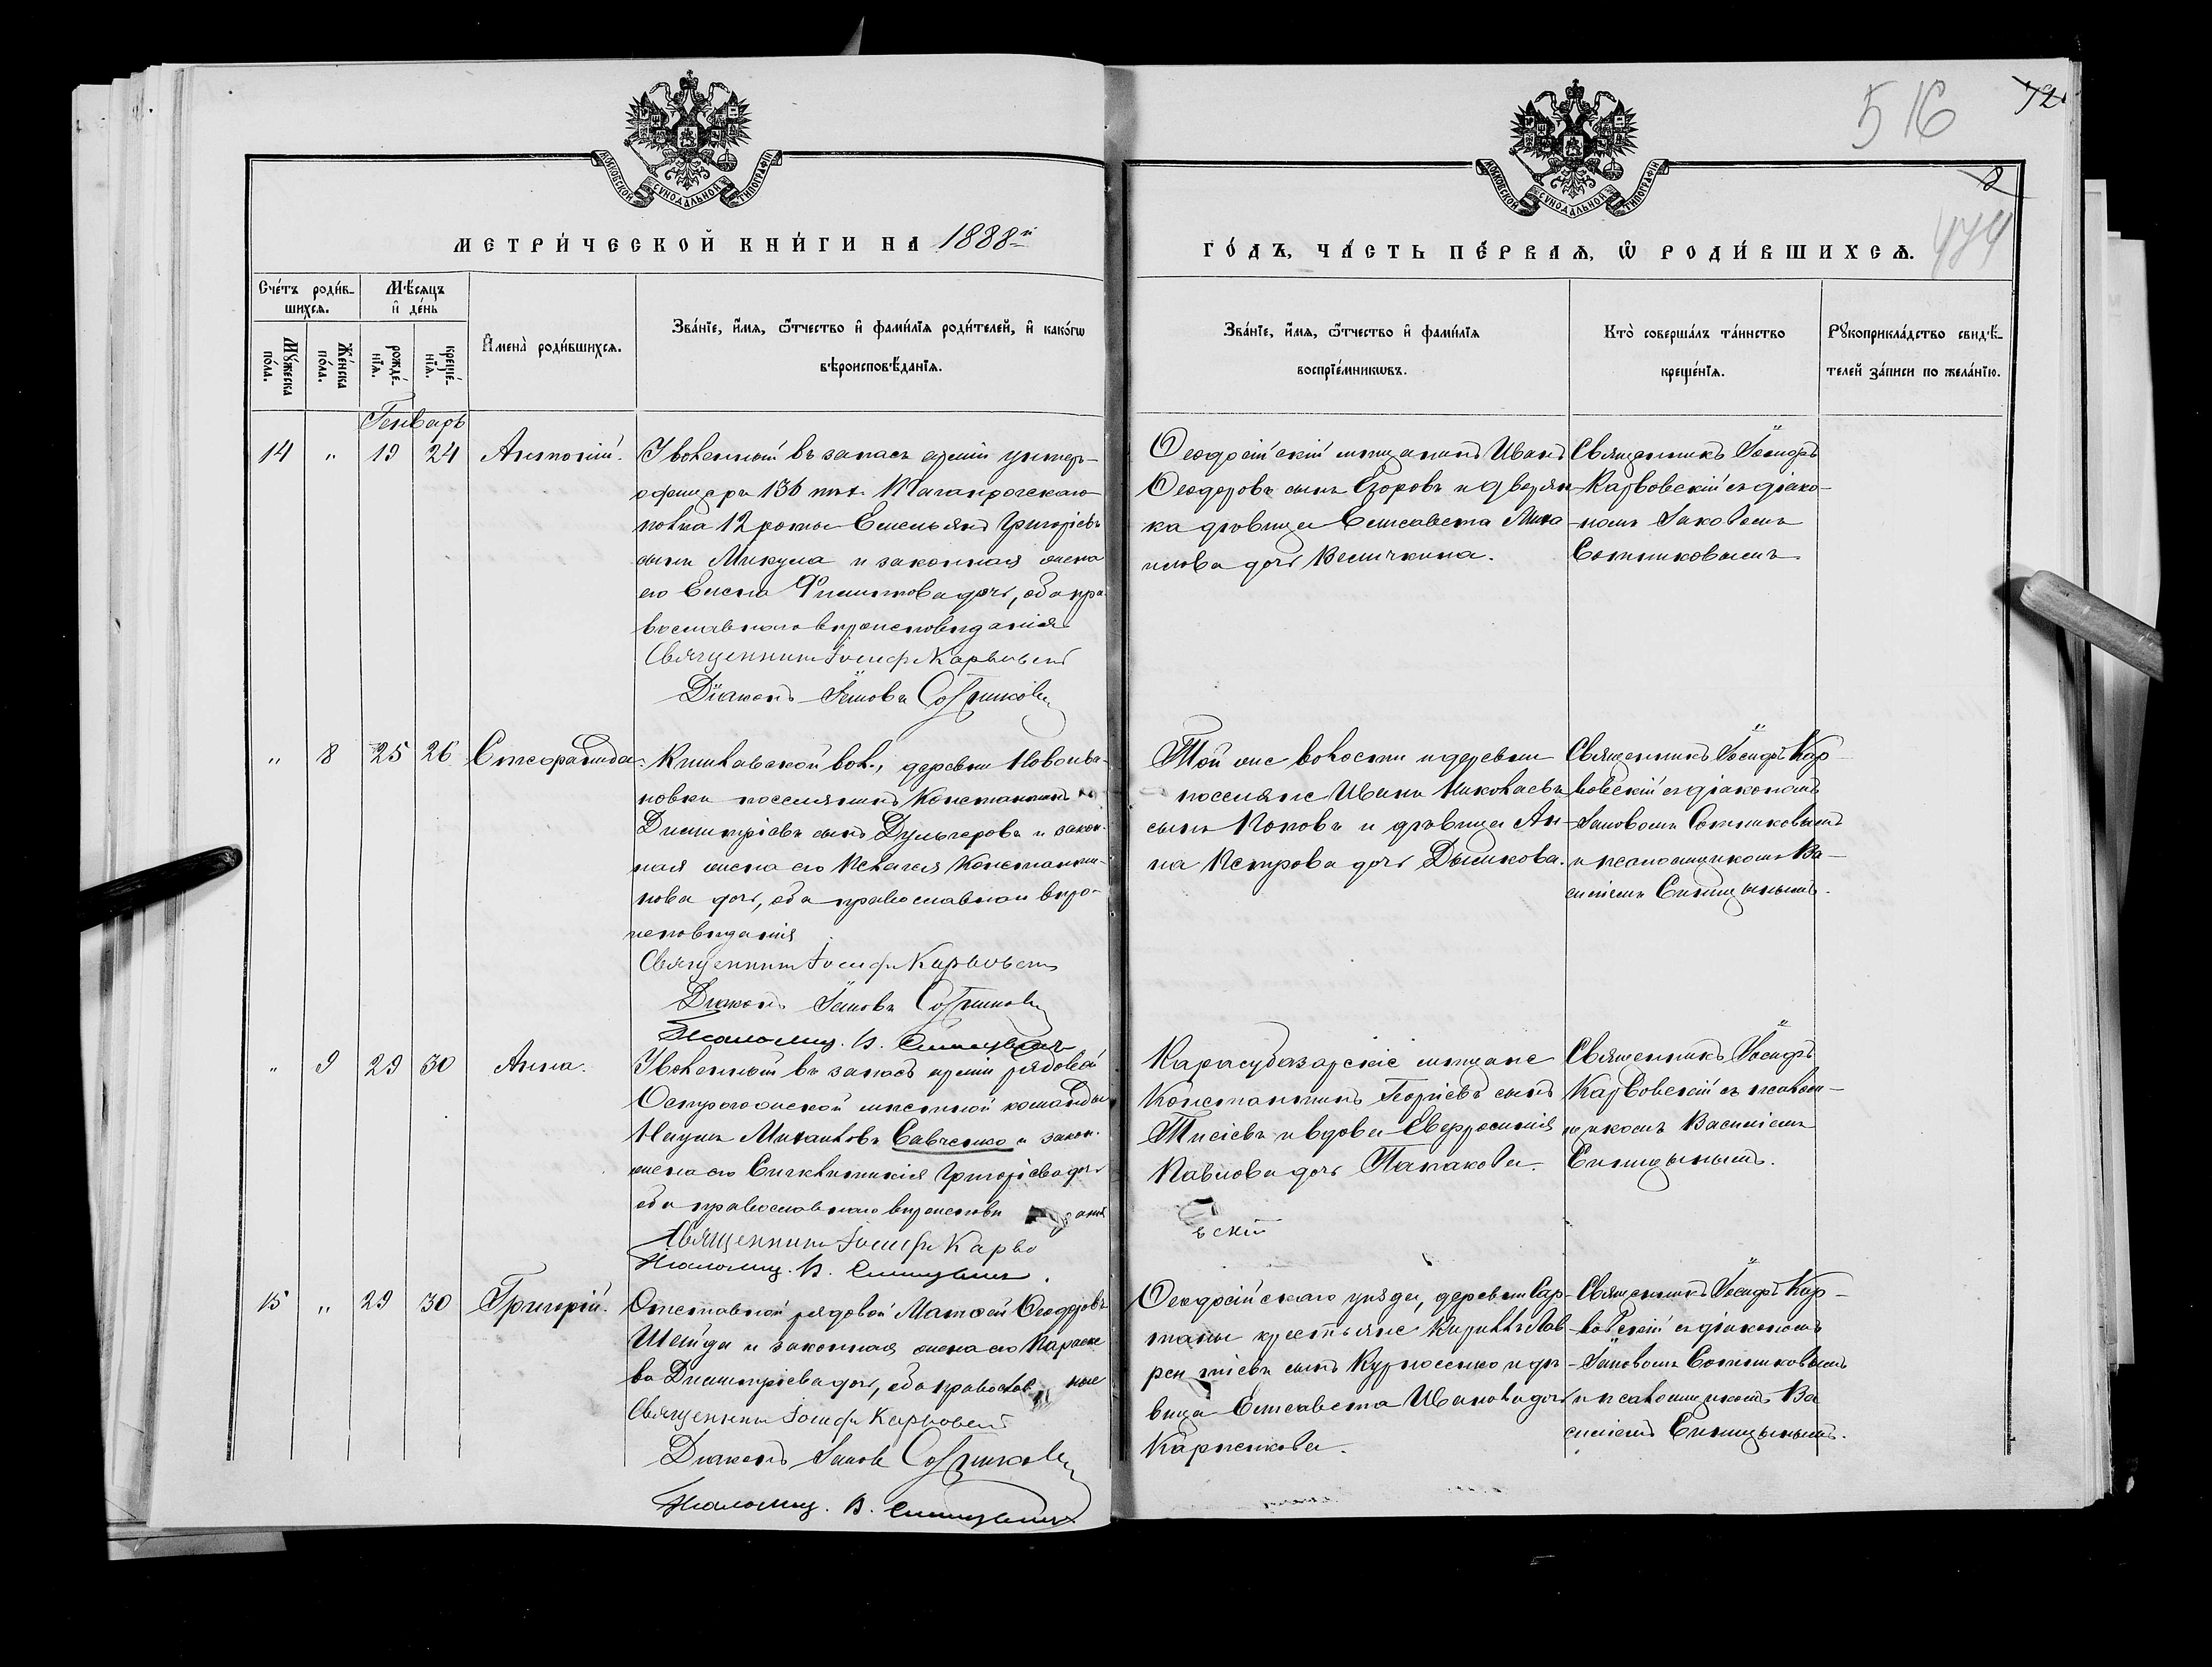 516
72
8
474
МОСКОВСКОЙ СУНОДАЛЬНОЙ ТИПОГРАФІИ
МОСКОВСКОЙ СУНОДАЛЬНОЙ ТИПОГРАФІИ
МЕТРИ́ЧЕСКОЙ КНИ́ГИ НА 1888й
ГО́ДЪ, ЧА́СТЬ ПЕ́РВАѦ, Ѡ РОДИ́ВШИХСѦ.
Сче́тъ роди́вшихсѧ.
Мѣ́сѧцъ и де́нь
Мꙋ́жеска по́ла.
Же́нска по́ла.
рожде́нїѧ.
креще́нїѧ.
И҆мена̀ роди́вшихсѧ.
Зва́нїе, и҆́мѧ, ѻ҆́тчество и҆ фами́лїѧ роди́телей, и҆ како́гѡ
вѣроисповѣ́данїѧ.
Зва́нїе, и҆́мѧ, ѻ҆́тчество и҆ фами́лїѧ
воспрїе́мникѡвъ.
Кто̀ соверша́лъ та́инство
креще́нїѧ.
Рꙋкоприкла́дство свидѣ́телей за́писи по жела́нїю.
Генварь
14 " 19 24 Антоній.
Уволенный въ запасъ арміи унтеръ-
офицеръ 136 пѣх. Таганрогскаго
полка 12 роты Емельянъ Григорьевъ
сынъ Микула и законная жена
его Елена Филиппова дочь, оба пра-
вославнаго вѣроисповѣданія
Священникъ Іосифъ Карвовскій
Діаконъ Іаковъ Сотниковъ
Ѳеодосійскій мѣщанинъ Иванъ
Ѳеодоровъ сынъ Егоровъ и дворян-
ка дѣвица Елисавета Миха-
илова дочь Величкина.
Священникъ Іосифъ
Карвовскій съ діако-
номъ Іаковомъ
Сотниковымъ
" 8 25 26
Кишлавской вол., деревни Новоива-
новки поселянинъ Константинъ
Димитріевъ сынъ Дульгеровъ и закон-
ная жена его Пелагея Константи-
нова дочь, оба православнаго вѣро-
исповѣданія
Священникъ Іосифъ Карвовскій
Діаконъ Іаковъ Сотниковъ
Псаломщ. В. Синицынъ
Той же волости и деревни
поселяне Иванъ Николаевъ
сынъ Поповъ и дѣвица Ан-
на Петрова дочь Дымкова.
Священникъ Іосифъ Кар-
вовскій съ діакономъ
Іаковомъ Сотниковымъ
и псаломщикомъ Ва-
силіемъ Синицынымъ.
" 9 29 30 Анна.
Уволенный въ запасъ арміи рядовой
Острогожской мѣстной команды
Наумъ Михаиловъ Савченко и закон.
жена его Синклитикія Григорьева дочь
оба православнаго вѣроисповѣданія
Священникъ Іосифъ Карво
вскій
Псаломщ. В. Синицынъ.
Карасубазарскіе мѣщане
Константинъ Георгіевъ сынъ
и вдова Евфросинія
Павлова дочь Папакова.
Священникъ Іосифъ
Карвовскій съ псалом-
щикомъ Василіемъ
Синицынымъ.
15 " 29 30 Григорій.
Отставной рядовой Матѳей Ѳеодоровъ
Шейда и законная жена его Параске-
ва Димитріева дочь, оба православные
Священникъ Іосифъ Карвовскій
Діаконъ Іаковъ Сотниковъ
Псаломщ. В. Синицынъ
Ѳеодосійскаго уѣзда, деревни Сар-
таны крестьяне Кириллъ Лав-
рентіевъ сынъ Курносенко и дѣ-
вица Елисавета Иванова дочь
Карпенкова.
Священникъ Іосифъ Кар-
вовскій съ діакономъ
Іаковомъ Сотниковымъ
и псаломщикомъ Ва
силіемъ Синицынымъ.